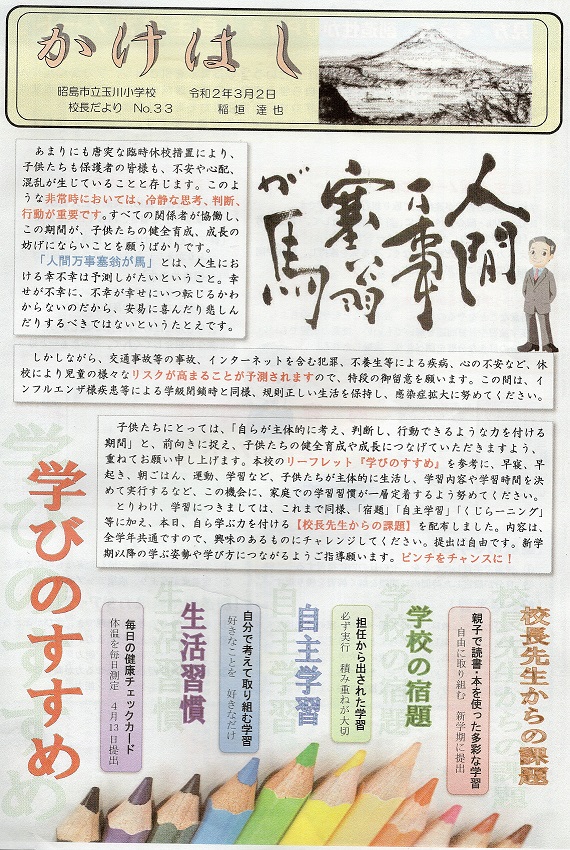 かけはし
昭島市立玉川小学校　令和2年3月2日
校長だより　No.33　稲垣　達也
あまりにも唐突な臨時休校措置により、
子供たちも保護者の皆様も、不安や心配、
混乱が生じていることと存じます。このよ
うな非常時においては、冷静な思考、判断、
行動が重要です。すべての関係者が協働し、
この期間が、子供たちの健全育成、成長の
妨げにならないことを願うばかりです。
「人間万事塞翁が馬」とは、人生にお
ける幸不幸は予測しがたいということ。幸
せが不幸に、不幸が幸せにいつ転じるかわ
からないのだから、安易に喜んだり悲しん
だりするべきではないというたとえです。
人間
万事
塞翁
が馬
しかしながら、交通事故等の事故、インターネットを含む犯罪、不養生等による疾病、心の不安など、休
校により児童の様々なリスクが高まることが予測されますので、特段の御留意を願います。この間は、イ
ンフルエンザ様疾患等による学級閉鎖時と同様、規則正しい生活を保持し、感染症拡大に努めてください。
子供たちにとっては、「自らが主体的に考え、判断し、行動できるような力を付ける
期間」と、前向きに捉え、子供たちの健全育成や成長につなげていただきますよう、
重ねてお願い申し上げます。本校のリーフレット『学びのすすめ』を参考に、早寝、早
起き、朝ごはん、運動、学習など、子供たちが主体的に生活し、学習内容や学習時間を決
めて実行するなど、この機会に、家庭での学習習慣が一層定着するよう努めてください。
とりわけ、学習につきましては、これまで同様、「宿題」「自主学習」「くじらーニング」
等に加え、本日、自ら学ぶ力を付ける【校長先生からの課題】を配布しました。内容は、
全学年共通ですので、興味のあるものにチャレンジしてください。提出は自由です。新学
期以降の学ぶ姿勢や学び方につながるようご指導願います。ピンチをチャンスに！
学びのすすめ
校長先生からの課題
親子で読書・本を使った多彩な学習
自由に取り組む　新学期に提出
学校の宿題
担任から出された学習
必ず実行　積み重ねが大切
自主学習
自分で考えて取り組む学習
好きなことを　好きなだけ
生活習慣
毎日の健康チェックカード
体温を毎日測定　4月13日提出